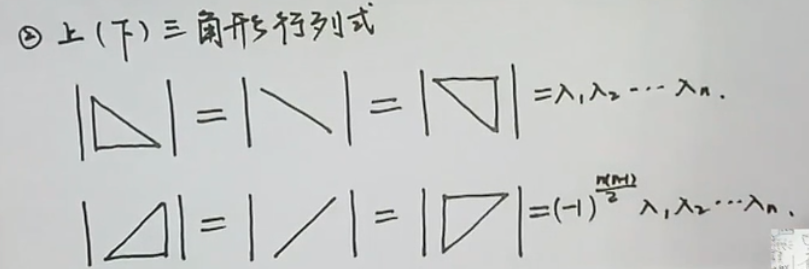 ② 上(下)三角形行列式
|◺| = |\| = |◹| = λ₁λ₂⋯λₙ.
|◿| = |/| = |◸| = (-1)^{\frac{n(n-1)}{2}} λ₁λ₂⋯λₙ.